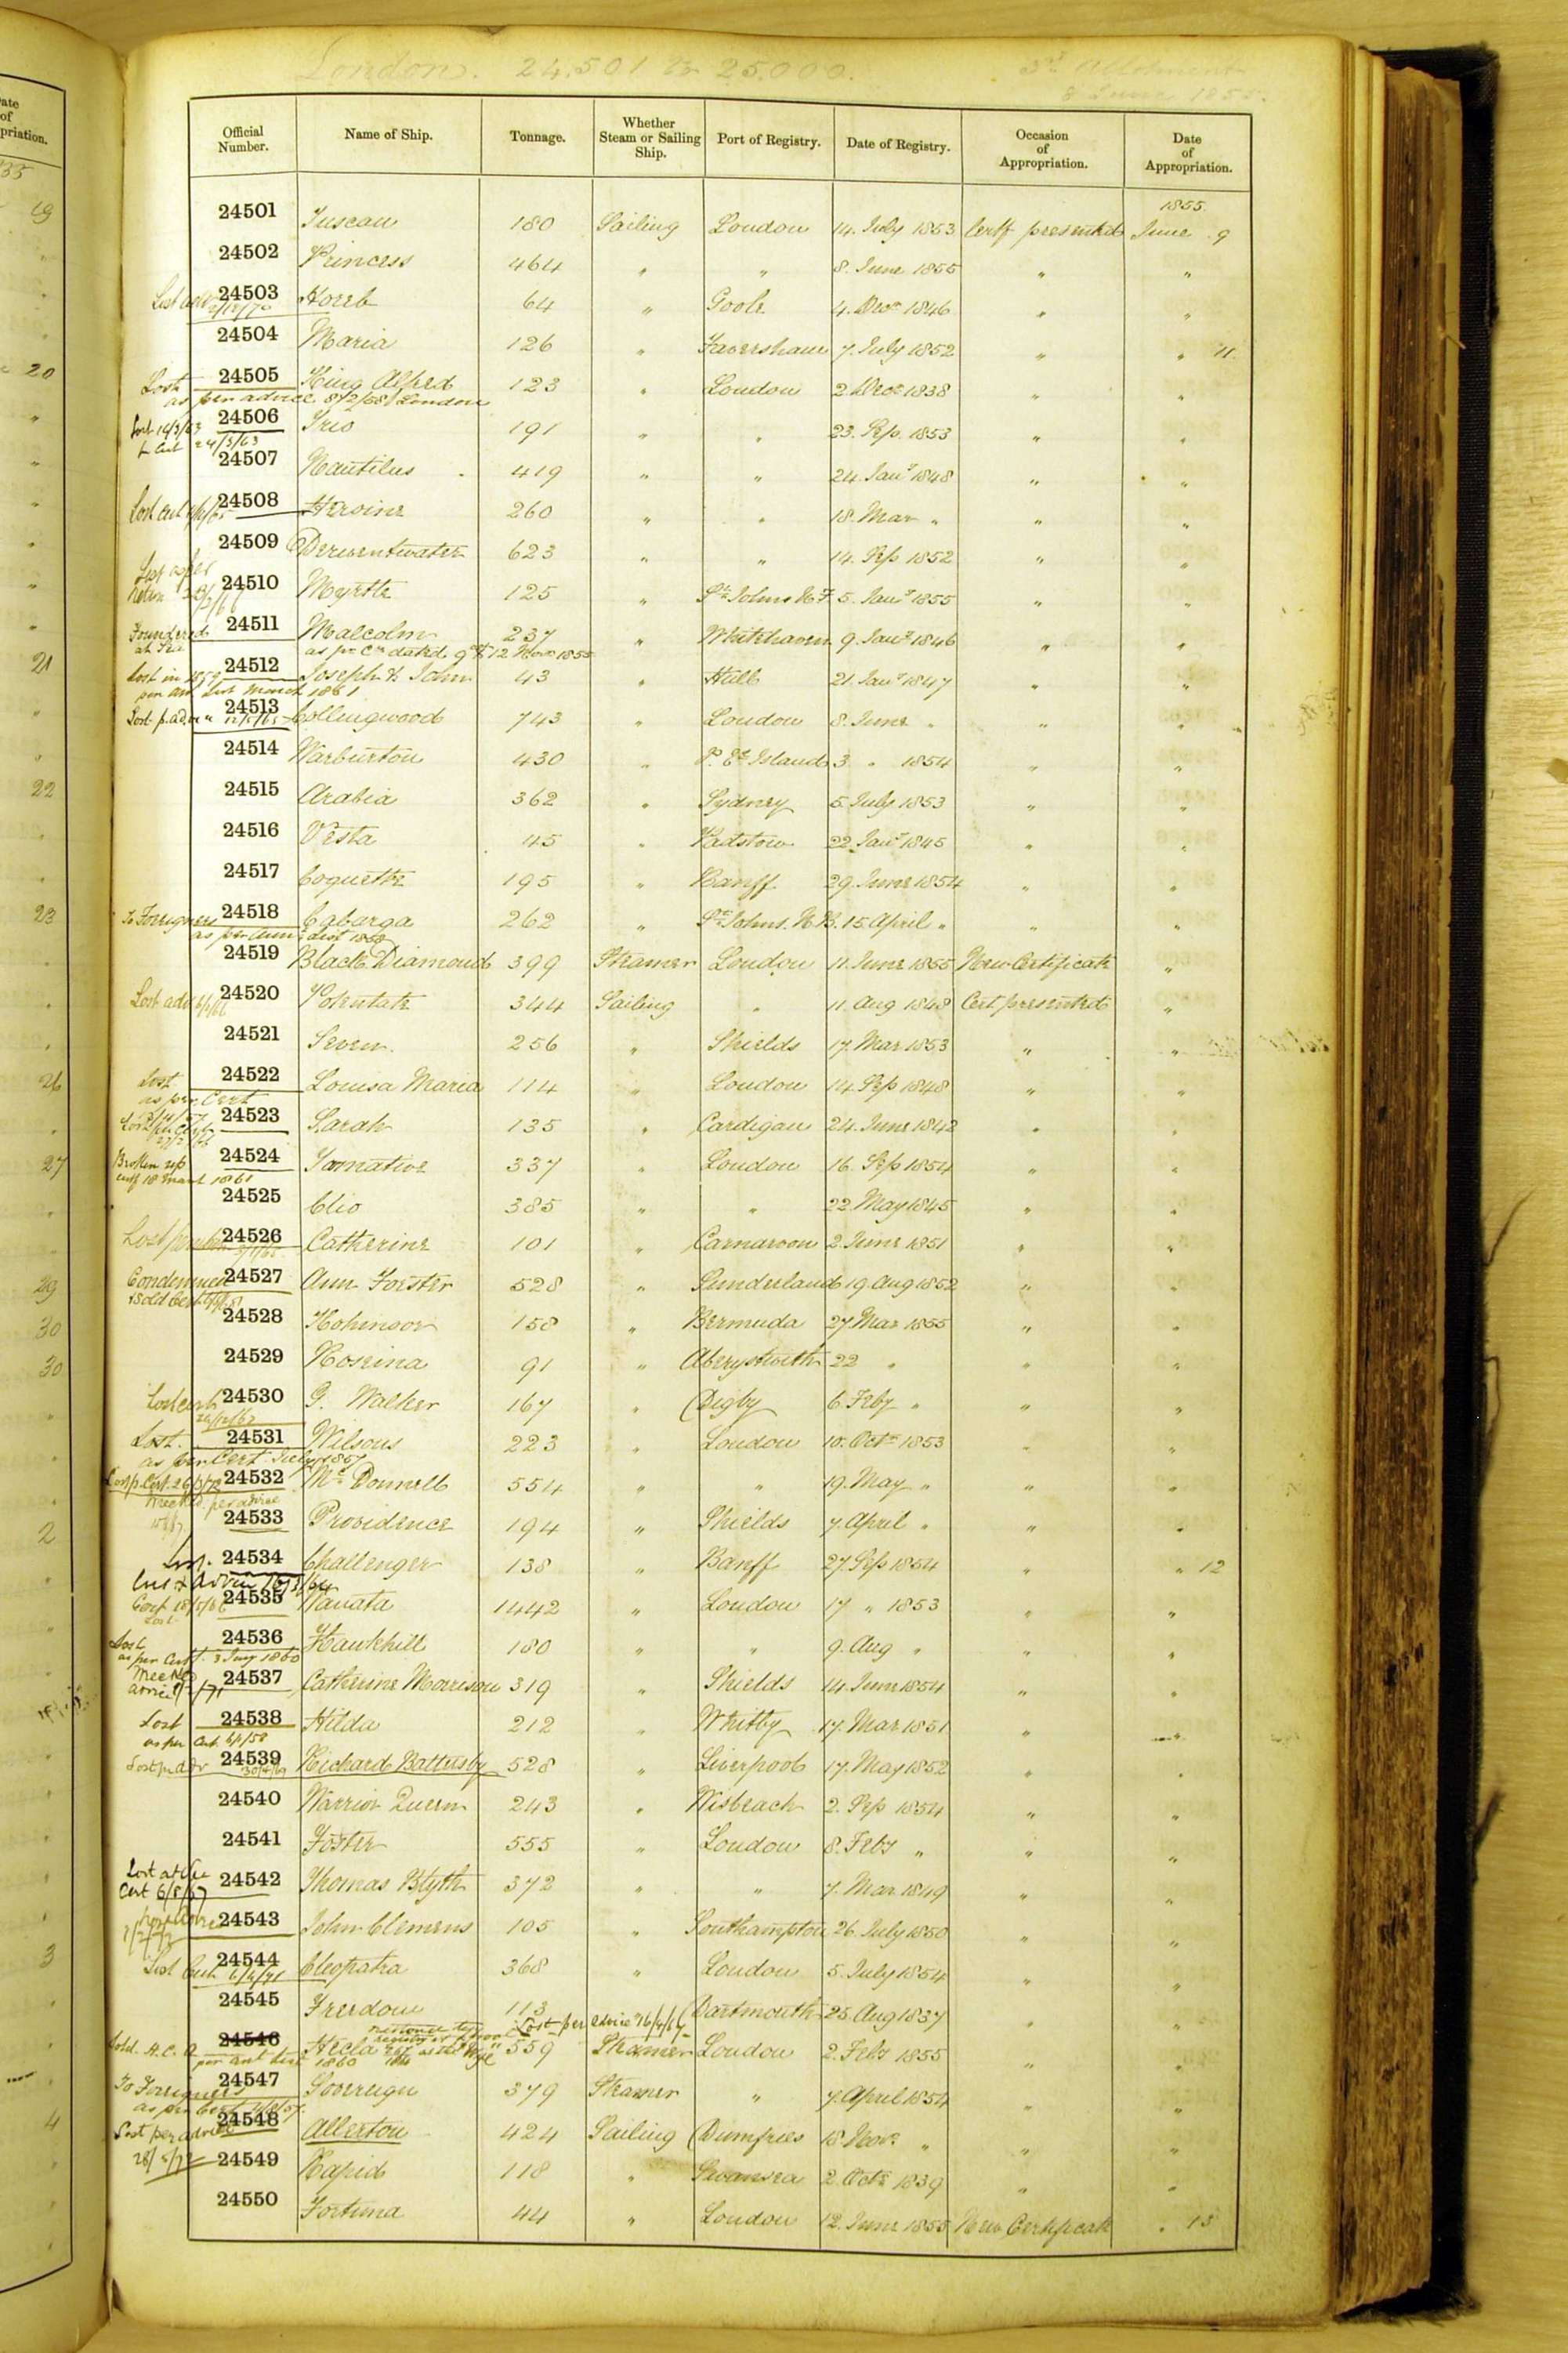 London. 24,501 to 25,000. 3rd Allotment
8 June 1855.
Official Number. Name of Ship. Tonnage. Whether Steam or Sailing Ship. Port of Registry. Date of Registry. Occasion of Appropriation. Date of Appropriation.
1855.
24501 Tuscan 180 Sailing London 14. July 1853 Certf presented June 9
24502 Princess 464 " " 8. June 1855 " "
24503 Horeb 64 " Goole 4. Decr 1846 " "
24504 Maria 126 " Faversham 7. July 1852 " " 11.
Lost 24505 King Alfred 123 " London 2 Decr 1838 " "
as per advice 8/2/58 London
24506 Trio 191 " " 23. Sep. 1853 " "
24/3/63
24507 Nautilus 419 " " 24. Jany 1848 " "
24508 Heroine 260 " " 18. Mar " " "
24509 Derwentwater 623 " " 14. Sep 1852 " "
Lost as per
24510 Myrtle 125 " St. Johns N.F. 5. Jany 1855 " "
Foundered at Sea 24511 Malcolm 237 " Whitehaven 9. Jany 1846 " "
as pr Crs dated 9 & 12 Novr 1855
Lost in 1859 24512 Joseph & John 43 " Hull 21. Jany 1847 " "
per ant List March 1861
24513 Collingwood 743 " London 8. June " " "
24514 Warburton 430 " P. Ed Island 3 " 1854 " "
24515 Arabia 362 " Sydney 5. July 1853 " "
24516 Vesta 45 " Padstow 22. Jany 1845 " "
24517 Coquette 195 " Banff 29. June 1854 " "
To Foreigners 24518 Cabarga 262 " St. Johns. N.B. 15. April " " "
as per Ann: List 1858
24519 Black Diamond 399 Steamer London 11. June 1855 New Certificate "
24520 Potentate 344 Sailing " 11. Aug 1848 Cert presented "
24521 Seven 256 " Shields 17. Mar 1853 " "
Lost 24522 Louisa Maria 114 " London 14. Sep 1848 " "
as per Cert
24523 Sarah 135 " Cardigan 24. June 1842 " "
Broken up 24524 Tamative 337 " London 16. Sep 1854 " "
certf 18 March 1861
24525 Clio 385 " " 22. May 1845 " "
24526 Catherine 101 " Carnarvon 2. June 1851 " "
Condemned 24527 Ann Forster 528 " Sunderland 19. Aug 1852 " "
& sold Cert
24528 Kohinoor 158 " Bermuda 27. Mar 1855 " "
24529 Rosina 91 " Aberystwith 22 " " "
Lost cert 24530 G. Walker 167 " Digby 6. Feby " " "
Lost. 24531 Wilsons 223 " London 10. Octr 1853 " "
as per Cert July 1857
24532 Mc Donnell 554 " " 19. May " " "
per advice
24533 Providence 194 " Shields 7. April " " "
24534 Challenger 138 " Banff 27. Sep 1854 " " 12
24535 Wanata 1442 " London 17 " 1853 " "
Lost
Lost 24536 Hawkhill 180 " " 9. Aug " " "
as per Cert. 3 Jany 1860
24537 Catherine Morrison 319 " Shields 14. June 1854 " "
Lost 24538 Hilda 212 " Whitby 17. Mar 1851 " "
as per Cert.
Lost pr adv 24539 Richard Battersby 528 " Liverpool 17. May 1852 " "
24540 Warrior Queen 243 " Wisbeach 2. Sep 1854 " "
24541 Foster 555 " London 8. Feby " " "
24542 Thomas Blyth 372 " " 7. Mar 1849 " "
Cert 6/8/67
24543 John Clemens 105 " Southampton 26. July 1850 " "
24544 Cleopatra 368 " London 5. July 1854 " "
24545 Freedom 113 " Dartmouth 25. Aug 1837 " "
Lost per advice 16/4/67
24546 Hecla 559 Steamer London 2. Feby 1855 " "
per ant List 1860
To Foreigners 24547 Sovereign 379 Steamer " 7. April 1854 " "
as per Cert
Lost per advice 24548 Allerton 424 Sailing Dumfries 18. Novr " " "
24549 Rapid 118 " Swansea 2. Octr 1839 " "
24550 Fortuna 44 " London 12. June 1855 New Certificate " 13